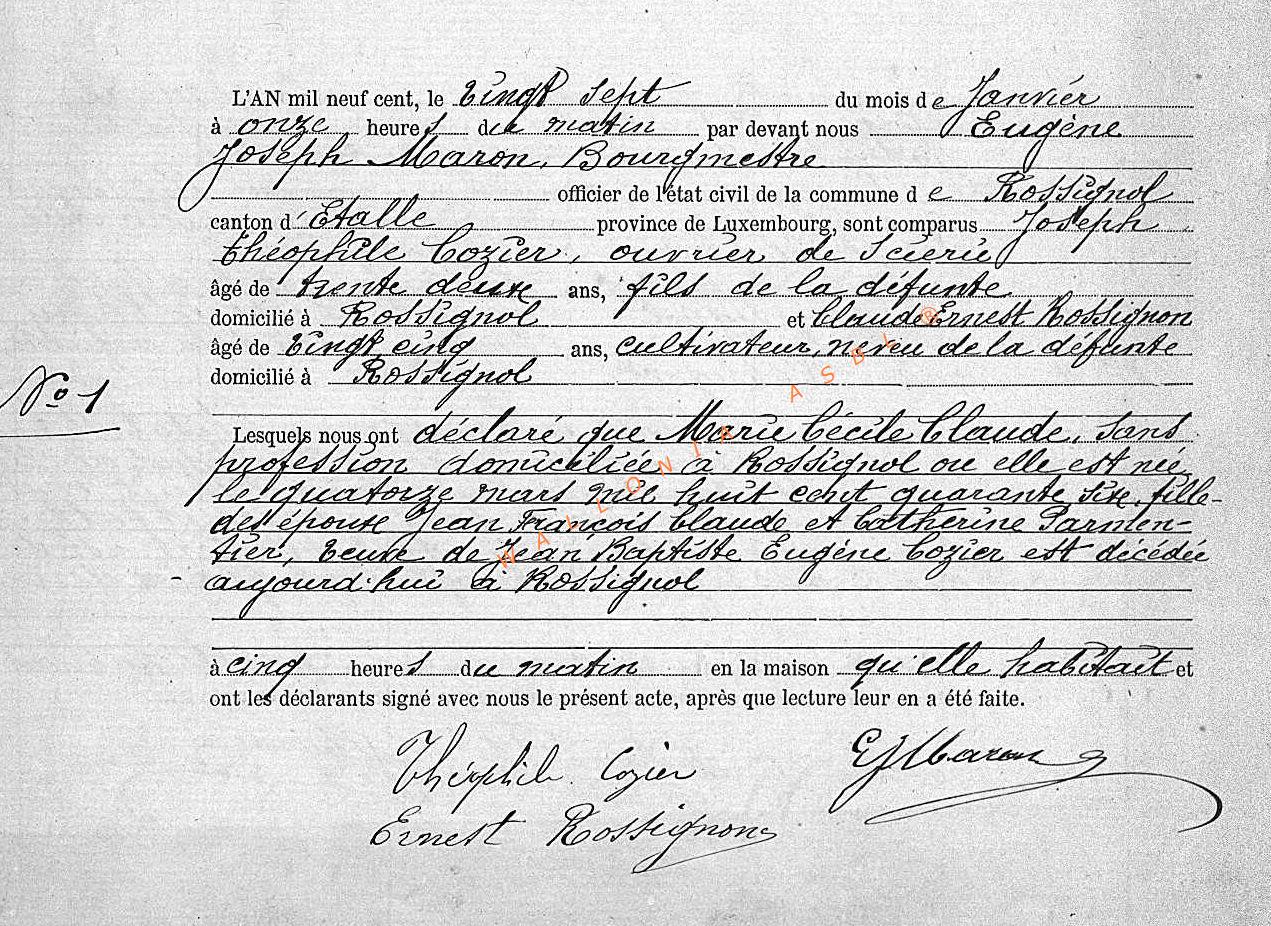 L'AN mil neuf cent, le vingt sept du mois de Janvier
à onze heures du matin par devant nous Eugène
Joseph Maron, Bourgmestre
officier de l'état civil de la commune de Rossignol
canton d'Etalle province de Luxembourg, sont comparus Joseph
théophile Cozier, ouvrier de Scierie
âgé de trente deux ans, fils de la défunte
domicilié à Rossignol et Claude Ernest Rossignon
âgé de vingt cinq ans, cultivateur, neveu de la défunte
domicilié à Rossignol
No 1
Lesquels nous ont déclaré que Marie Cécile Claude, sans
profession domiciliée à Rossignol ou elle est née
le quatorze mars mil huit cent quarante six, fille
des époux Jean François Claude et Catherine Parmen-
tier, veuve de Jean Baptiste Eugène Cozier est décédée
aujourd'hui à Rossignol
à cinq heures du matin en la maison qu'elle habitait et
ont les déclarants signé avec nous le présent acte, après que lecture leur en a été faite.
Théophile Cozier EJMaron
Ernest Rossignon
WALLONIA ASBL ®